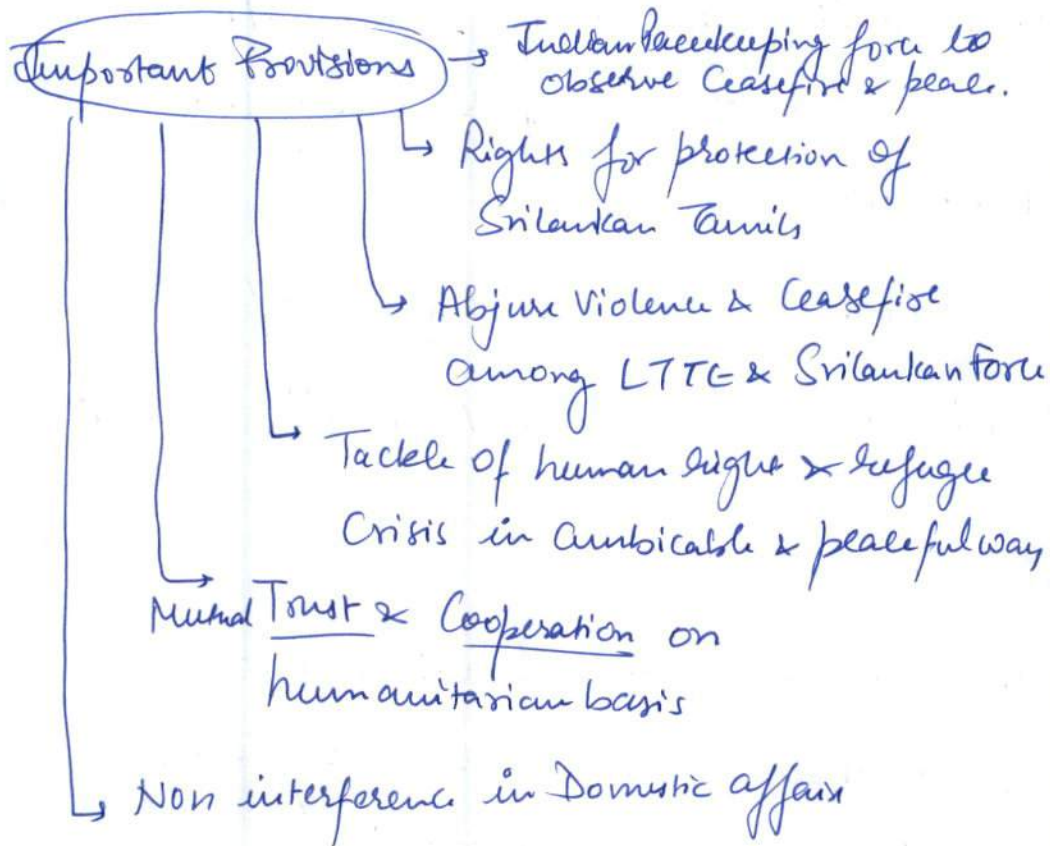 Important Provisions → Indian Peacekeeping force to
observe Ceasefire & peace.
→ Rights for protection of
Srilankan Tamils
→ Abjure Violence & Ceasefire
among LTTE & Srilankan Force
→ Tackle of human right & refugee
Crisis in ambicable & peaceful way
→ Mutual Trust & Cooperation on
humanitarian basis
→ Non interference in Domestic affair